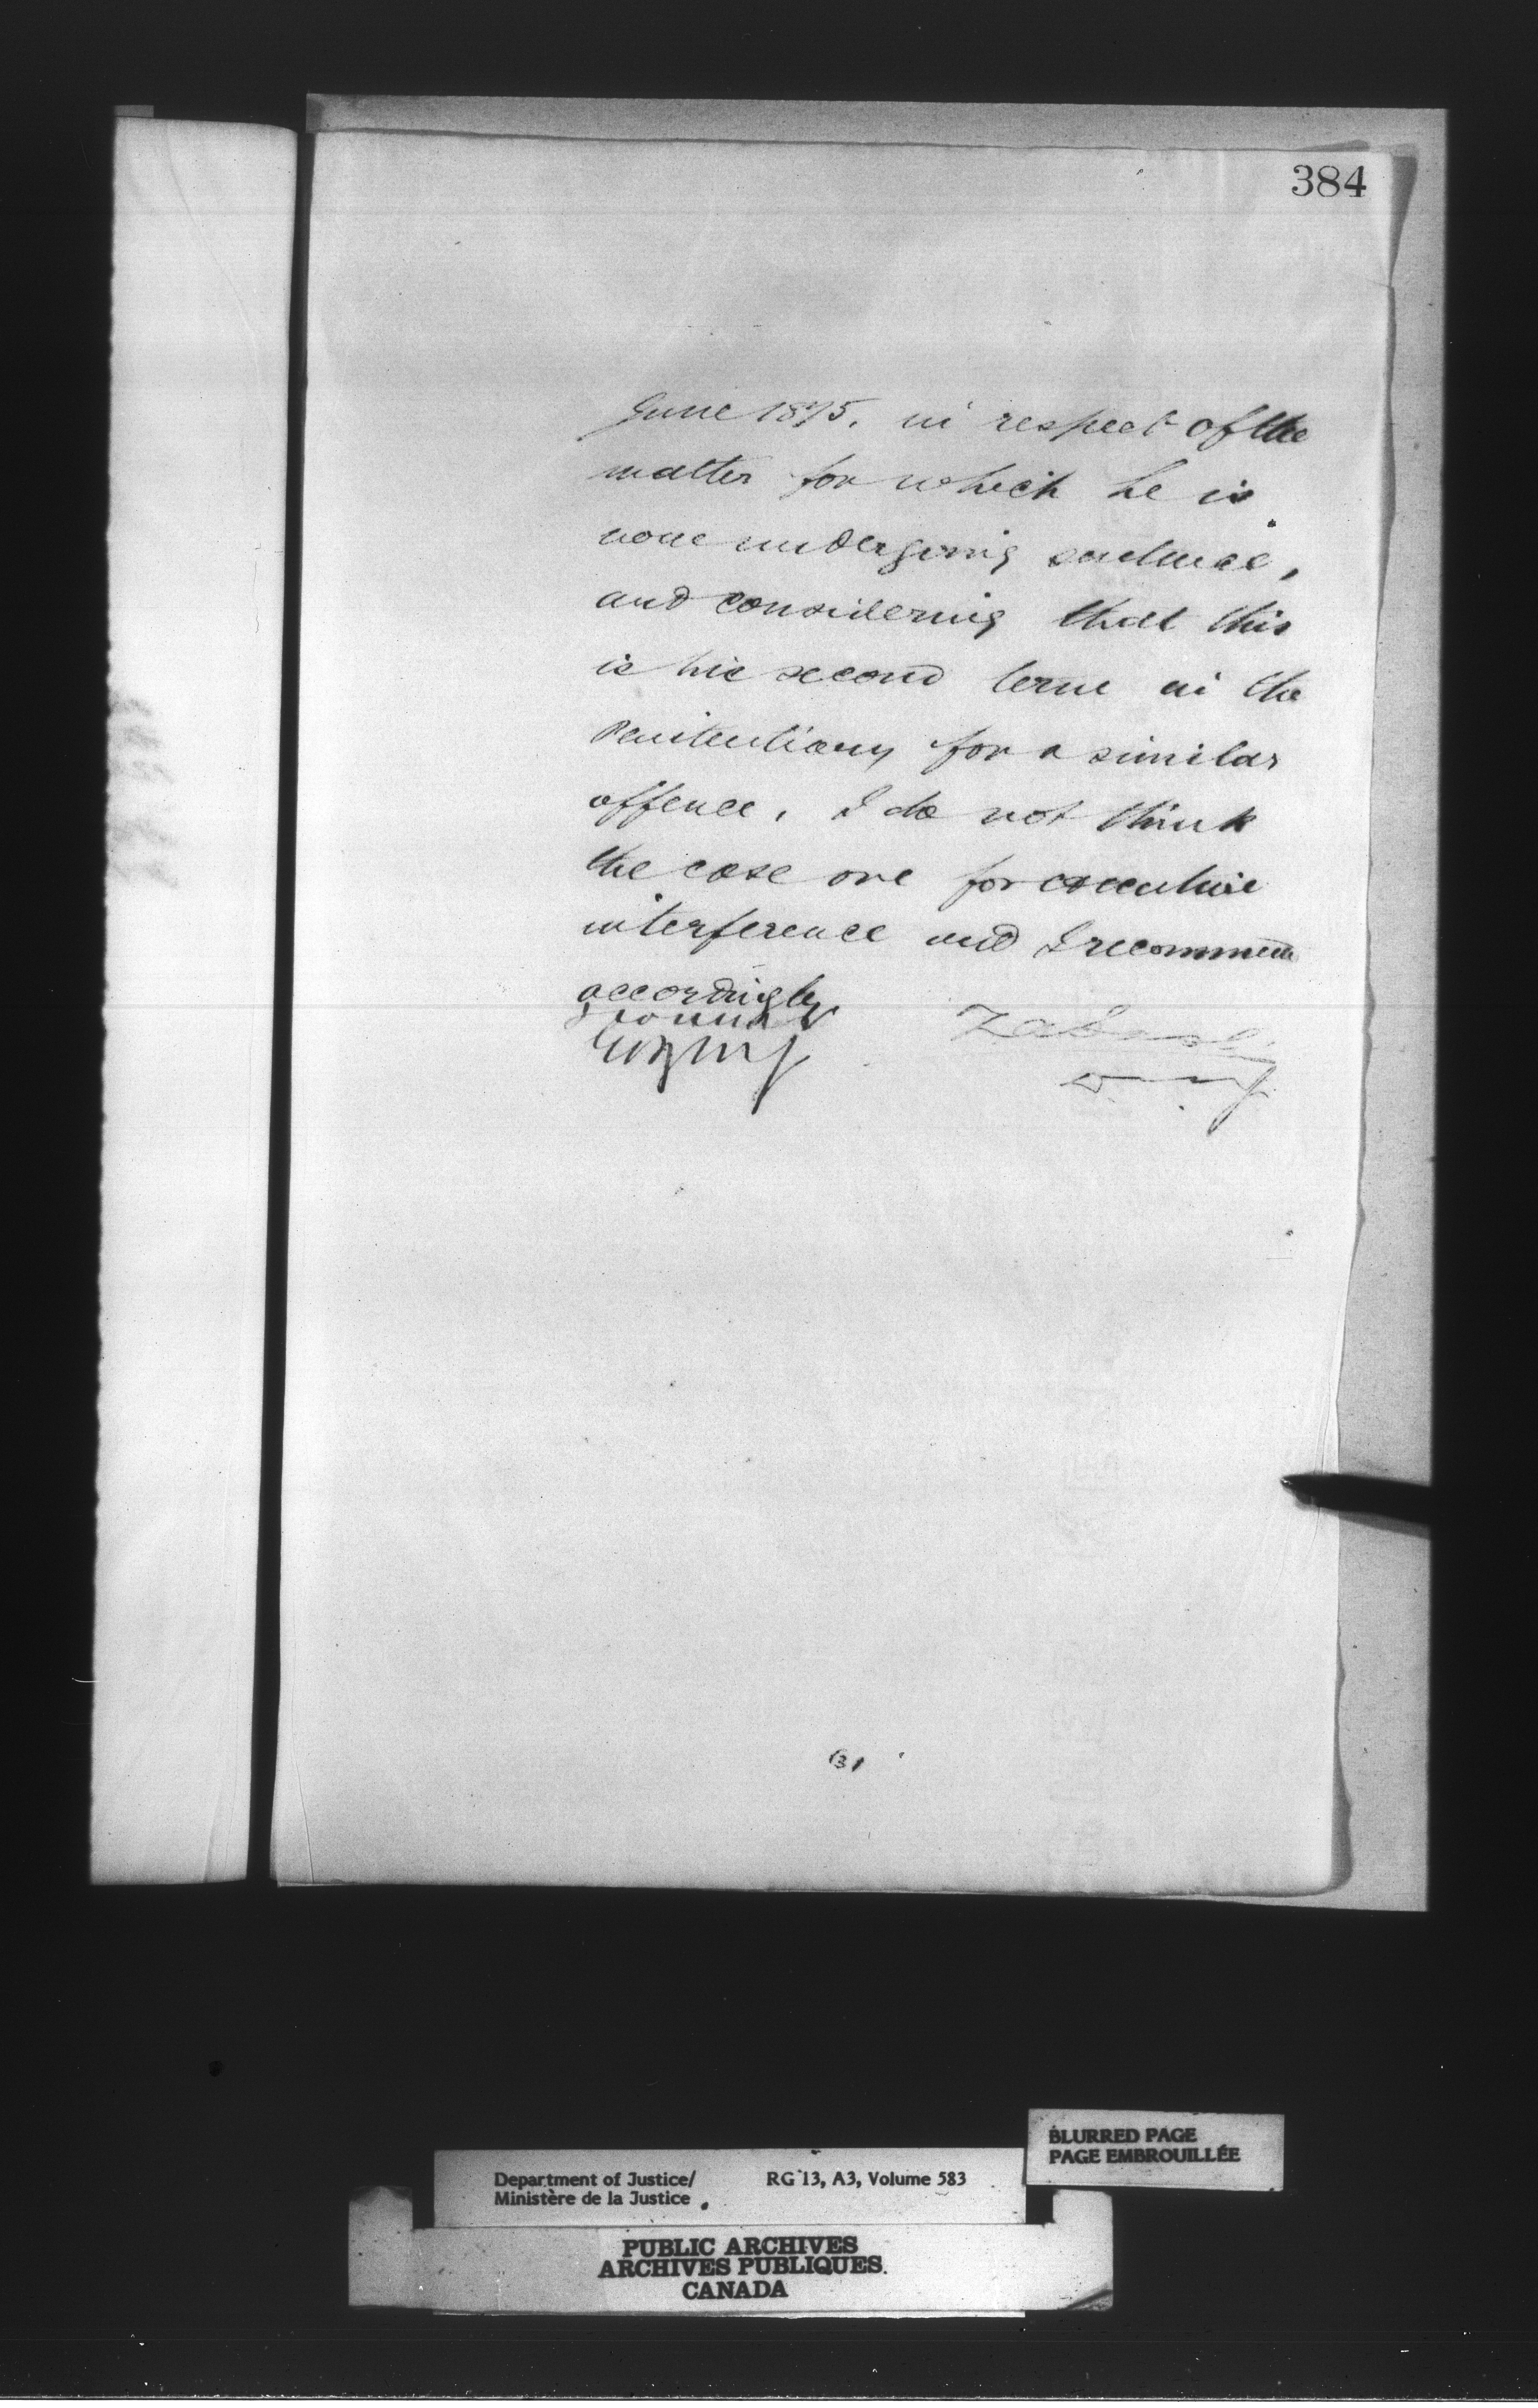 384
June 1875. in respect of the
matter for which he is
now undergoing sentence,
and considering that this
is his second term in the
Penitentiary for a similar
offence, I do not think
the case one for executive
interference and I recommend
accordingly
I concur
(3)
BLURRED PAGE
PAGE EMBROUILLÉE
Department of Justice/ RG 13, A3, Volume 583
Ministère de la Justice
PUBLIC ARCHIVES
ARCHIVES PUBLIQUES
CANADA